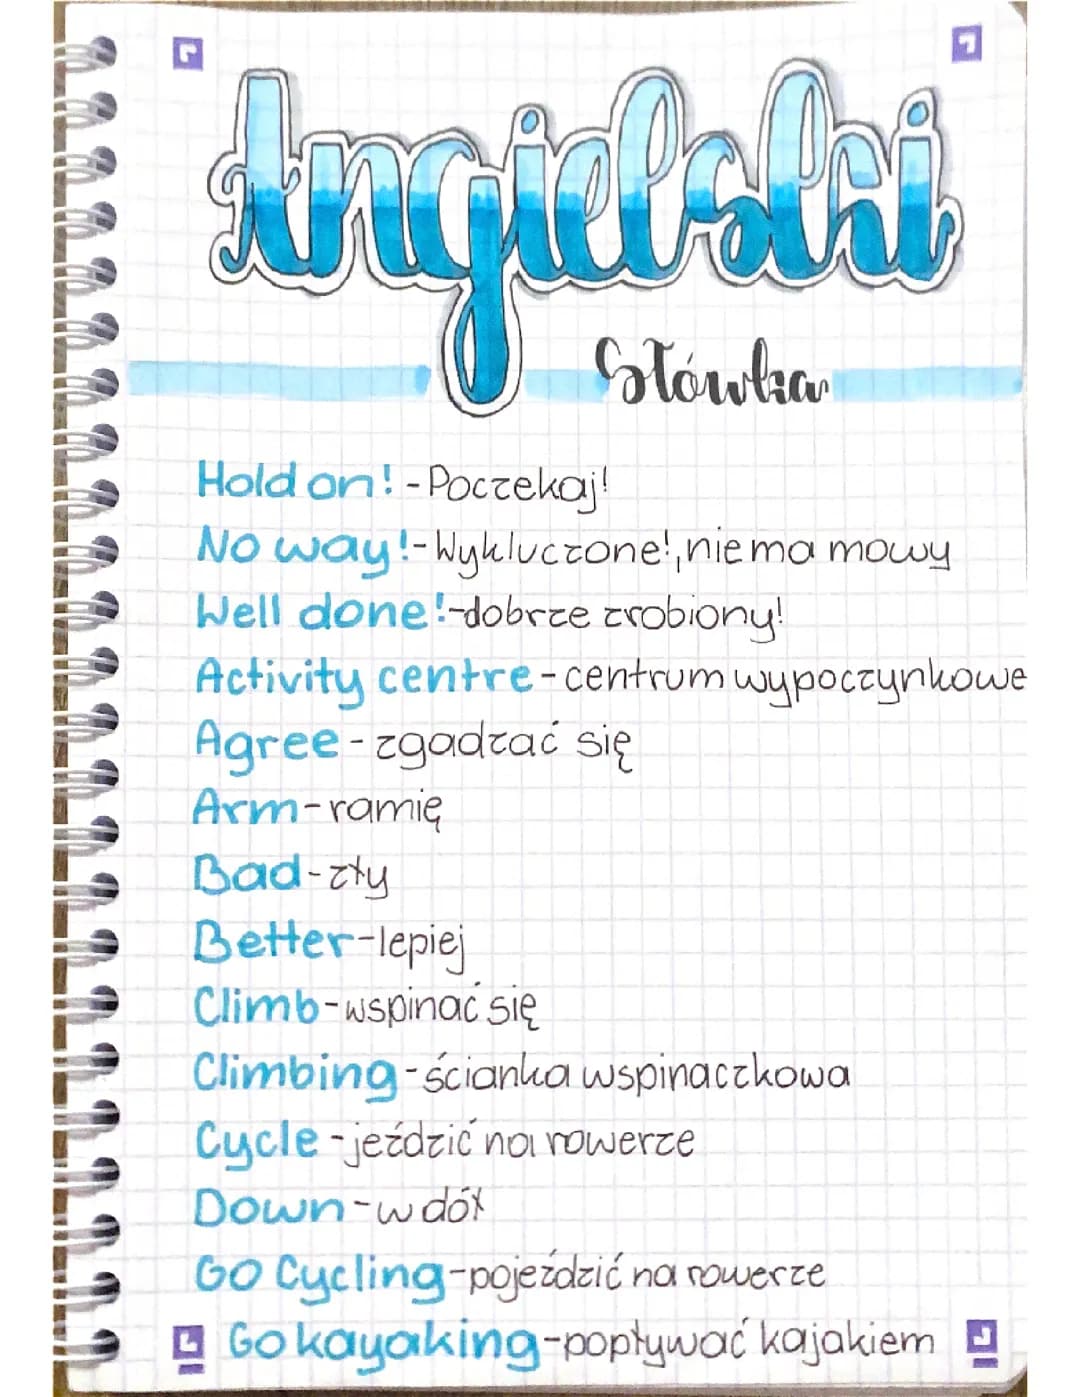 Angielski
Słówka
Hold on! - Poczekaj!
No way! - Wykluczone!, nie ma mowy
Well done! - dobrze zrobiony!
Activity centre - centrum wypoczynkowe
Agree - zgadzać się
Arm - ramię
Bad - zły
Better - lepiej
Climb - wspinać się
Climbing - ścianka wspinaczkowa
Cycle - jeździć na rowerze
Down - w dół
GO Cycling - pojeździć na rowerze
Go kayaking - popływać kajakiem